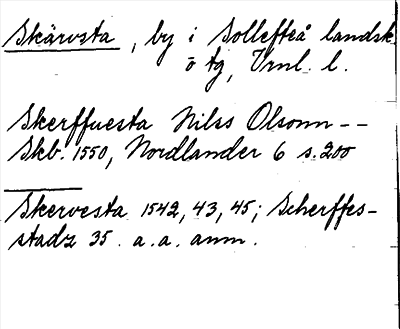 Skärvsta, by i Sollefteå landsk.
o tg, Vrnl. l.
Skerffuesta Nilss Olsonn --
Skb. 1550, Nordlander 6 s. 200
Skervesta 1542, 43, 45; Scherffes-
stadz 35. a. a. anm.